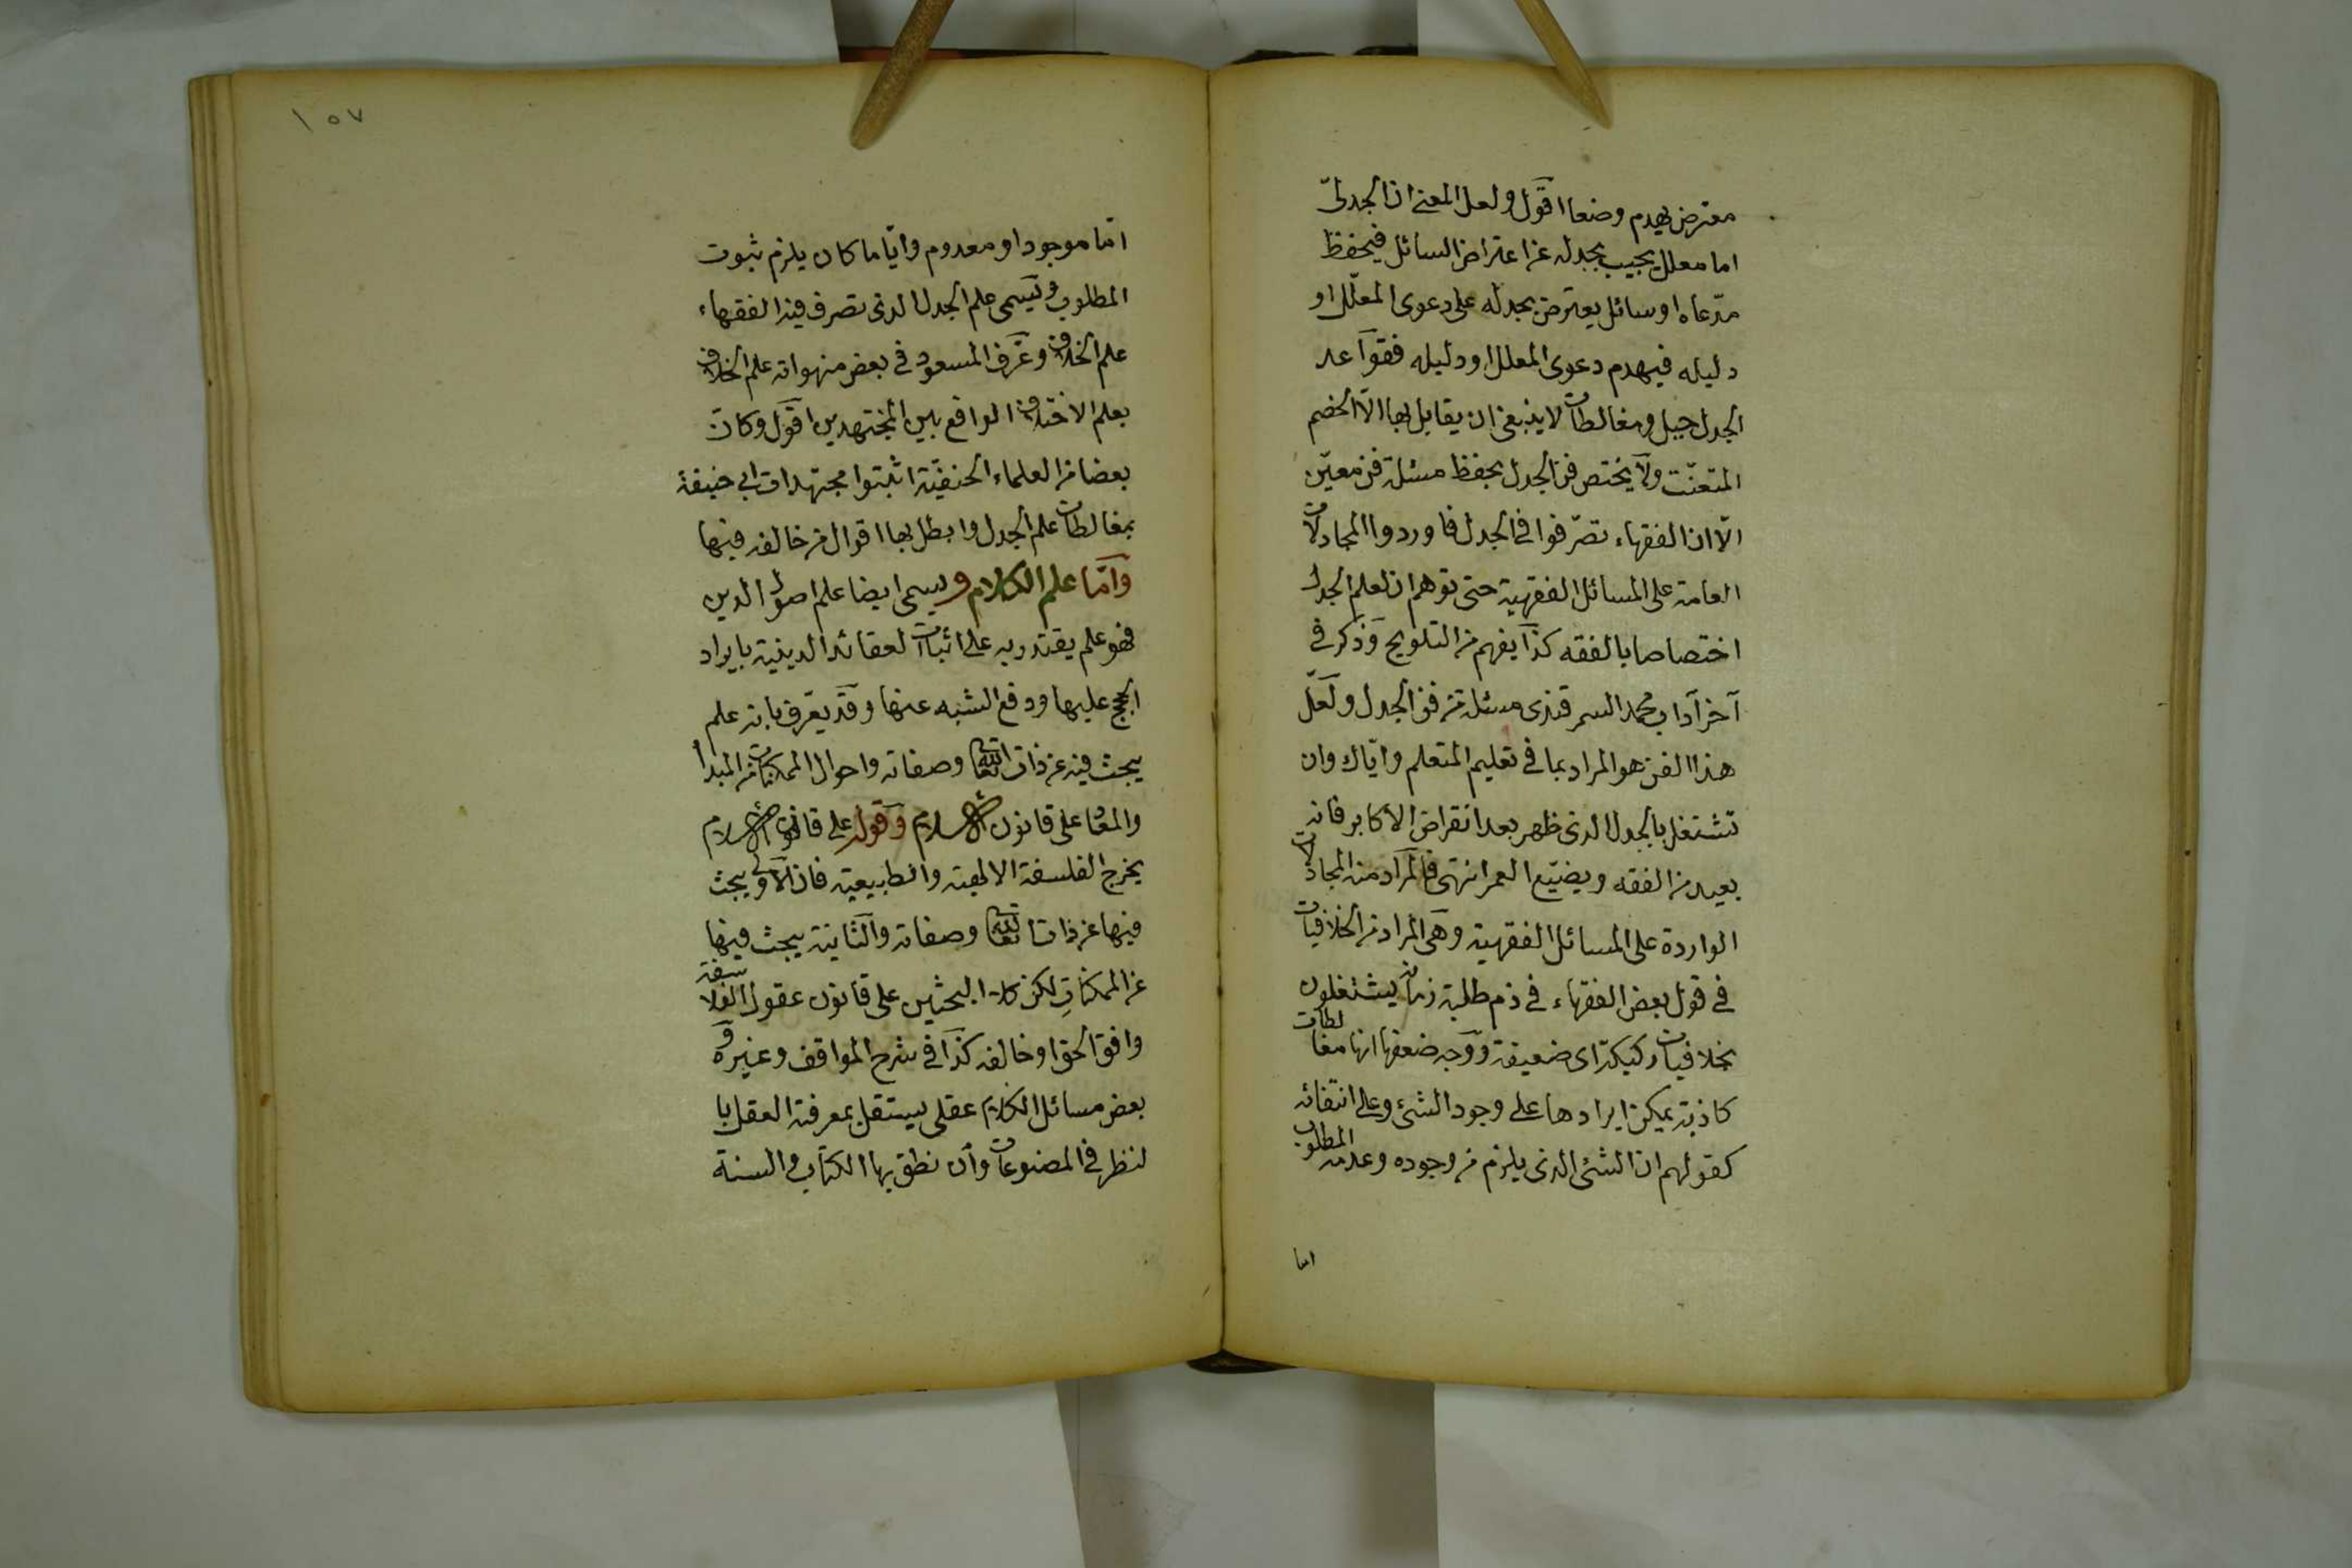 معترض يهدم وضعا اقول ولعل المعنى ان الجدلىّ
اما معلل يجيب بجدله عن اعتراض السائل فيحفظ
مدّعاه او سائل يعترض بجدله على دعوى المعلّل او
دليله فيهدم دعوى المعلل او دليله فقواعد
الجدل حيل ومغالطات لا ينبغى ان يقابل بها الّا الخصم
المتعنّت ولا يختص فن الجدل بحفظ مسئلة فن معيّن
الّا ان الفقهاء تصرّفوا فى الجدل فاوردوا المجادلات
العامة على المسائل الفقهية حتى توهم ان لعلم الجدل
اختصاصا بالفقه كذا يفهم من التلويح وذكر فى
آخر آداب محمد السمرقندى مسئلة من فن الجدل ولعلّ
هذا الفن هو المراد بما فى تعليم المتعلم واياك وان
تشتغل بالجدل الذى ظهر بعد انقراض الاكابر فانه
بعيد من الفقه ويضيّع العمر انتهى فالمراد منه المجادلات
الواردة على المسائل الفقهية وهى المراد من الخلافيات
فى قول بعض الفقهاء فى ذم طلبة زمانه يشتغلون
بخلافيات ركيكة اى ضعيفة ووجه ضعفها انها مغالطات
كاذبة يمكن ايرادها على وجود الشئ وعلى انتفائه
كقولهم ان الشئ الذى يلزم من وجوده وعدمه المطلوب
اما
١٥٧
امّا موجود او معدوم وايّا ما كان يلزم ثبوت
المطلوب ويسمى علم الجدل الذى تصرف فيه الفقهاء
علم الخلاف وعرّف المسعود فى بعض منهواته علم الخلاف
بعلم الاختلاف الواقع بين المجتهدين اقول وكان
بعضا من العلماء الحنفيّة اثبتوا مجتهدات ابى حنيفة
بمغالطات علم الجدل وابطل بها اقوال من خالفه فيها
وامّا علم الكلام ويسمى ايضا علم اصول الدين
فهو علم يقتدر به على اثبات العقائد الدينية بايراد
الحجج عليها ودفع الشبه عنها وقد يعرف بانه علم
يبحث فيه عن ذات الله تعالى وصفاته واحوال الممكنات من المبدأ
والمعاد على قانون الاسلام وقوله على قانون الاسلام
يخرج الفلسفة الالهية والطبيعية فان الاولى يبحث
فيها عن ذات الله تعالى وصفاته والثانية يبحث فيها
عن الممكنات لكن كلا البحثين على قانون عقول الفلاسفة
وافق الحق او خالفه كذا فى شرح المواقف وغيره و
بعض مسائل الكلام عقلى يستقل بمعرفته العقل با
لنظر فى المصنوعات وأن نطق بها الكتاب والسنة